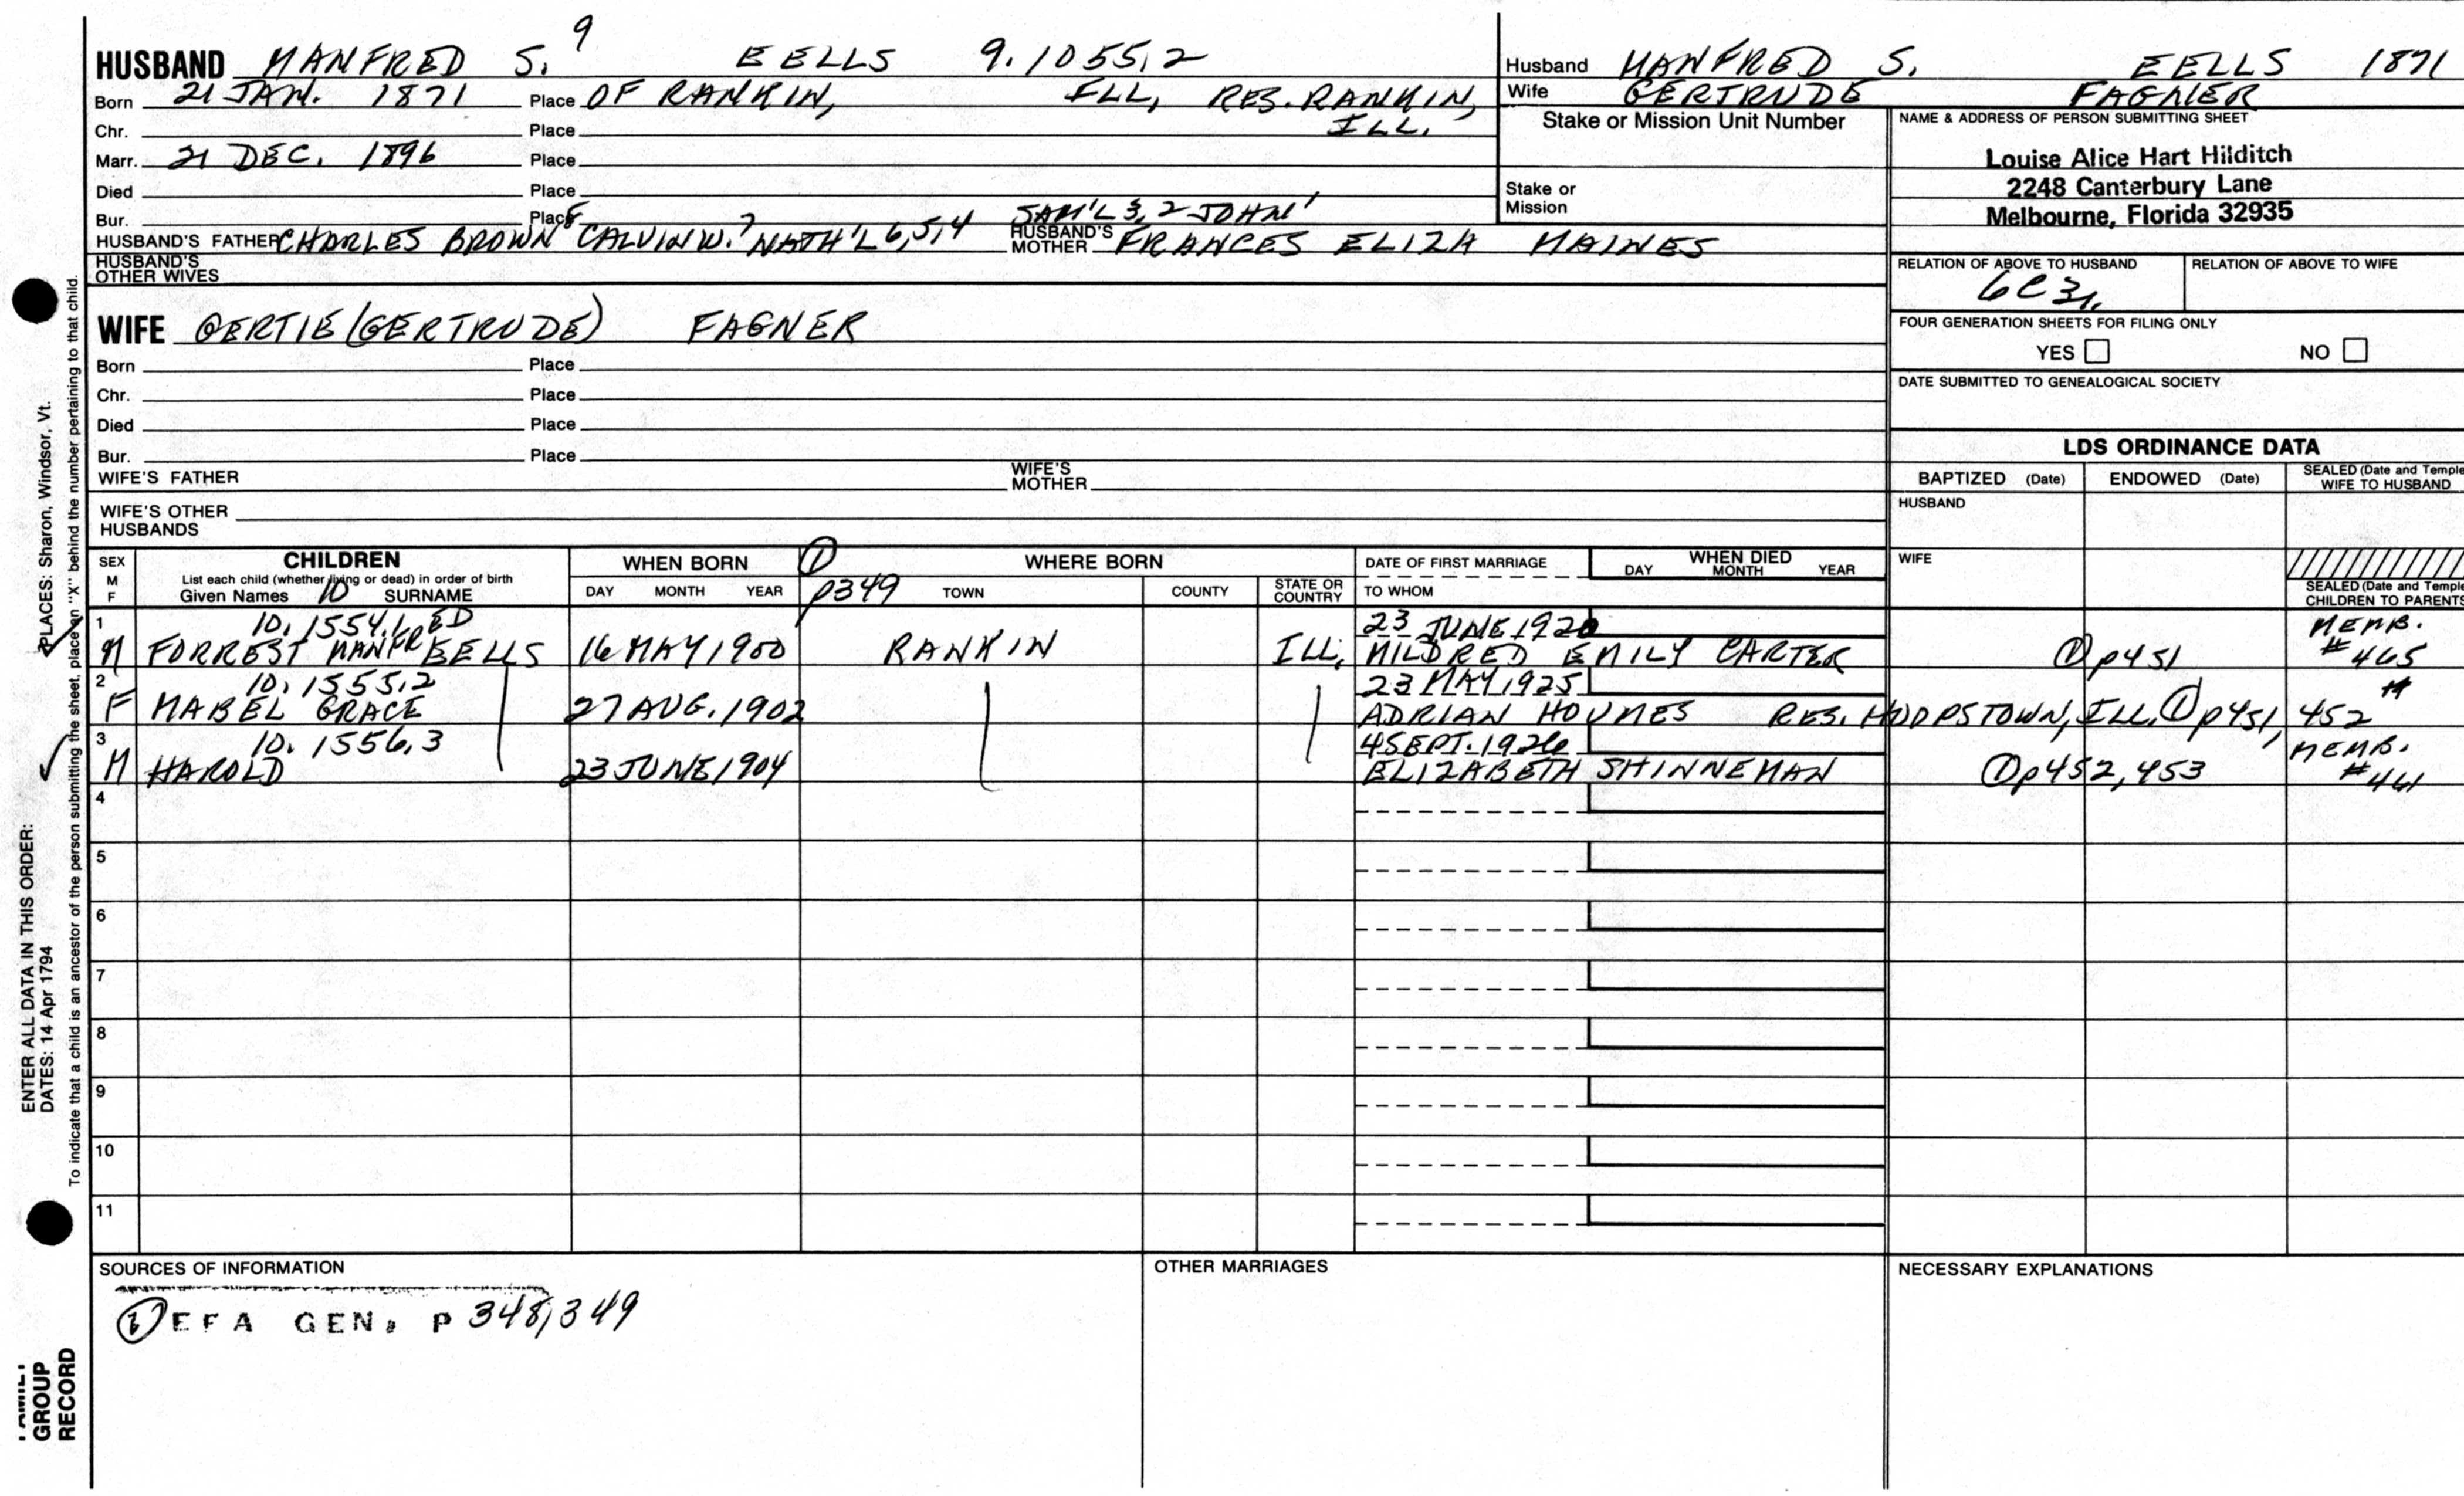 HUSBAND MANFRED S. 9 EELLS 9.1055,2
Born 21 JAN. 1871 Place OF RANKIN, ILL, RES. RANKIN, ILL.
Chr. Place
Marr. 21 DEC. 1896 Place
Died Place
Bur. Place
HUSBAND'S FATHER CHARLES BROWN 8 CALVIN W. 7 NATH'L 6,5,4 SAM'L 3,2 JOHN 1 HUSBAND'S MOTHER FRANCES ELIZA MAINES
HUSBAND'S OTHER WIVES
WIFE GERTIE (GERTRUDE) FAGNER
Born Place
Chr. Place
Died Place
Bur. Place
WIFE'S FATHER WIFE'S MOTHER
WIFE'S OTHER HUSBANDS
Husband MANFRED S. EELLS 1871
Wife GERTRUDE FAGNER
Stake or Mission Unit Number
Stake or Mission
NAME & ADDRESS OF PERSON SUBMITTING SHEET
Louise Alice Hart Hilditch
2248 Canterbury Lane
Melbourne, Florida 32935
RELATION OF ABOVE TO HUSBAND RELATION OF ABOVE TO WIFE
6C3r.
FOUR GENERATION SHEETS FOR FILING ONLY
YES NO
DATE SUBMITTED TO GENEALOGICAL SOCIETY
LDS ORDINANCE DATA
BAPTIZED (Date) ENDOWED (Date) SEALED (Date and Temple WIFE TO HUSBAND
HUSBAND
WIFE
SEALED (Date and Temple CHILDREN TO PARENTS
SEX M F
CHILDREN
List each child (whether living or dead) in order of birth
Given Names 10 SURNAME
WHEN BORN
DAY MONTH YEAR
① p349
WHERE BORN
TOWN COUNTY STATE OR COUNTRY
DATE OF FIRST MARRIAGE
TO WHOM
WHEN DIED
DAY MONTH YEAR
1 10.1554,1 23 JUNE 1920 MEMB.
M FORREST MANFRED EELLS 16 MAY 1900 RANKIN ILL, MILDRED EMILY CARTER ① p451 #465
2 10.1555,2 23 MAY 1925
F MABEL GRACE 27 AUG. 1902 ADRIAN HOUMES RES. HOOPSTOWN, ILL. ① p451, 452
3 10.1556,3 4 SEPT. 1926 MEMB.
M HAROLD 23 JUNE 1904 ELIZABETH SHINNEMAN ① p452,453 #461
4
5
6
7
8
9
10
11
SOURCES OF INFORMATION
① EFA GEN. P 348,349
OTHER MARRIAGES
NECESSARY EXPLANATIONS
ENTER ALL DATA IN THIS ORDER:
DATES: 14 Apr 1794 PLACES: Sharon, Windsor, Vt.
To indicate that a child is an ancestor of the person submitting the sheet, place an "X" behind the number pertaining to that child.
GROUP
RECORD